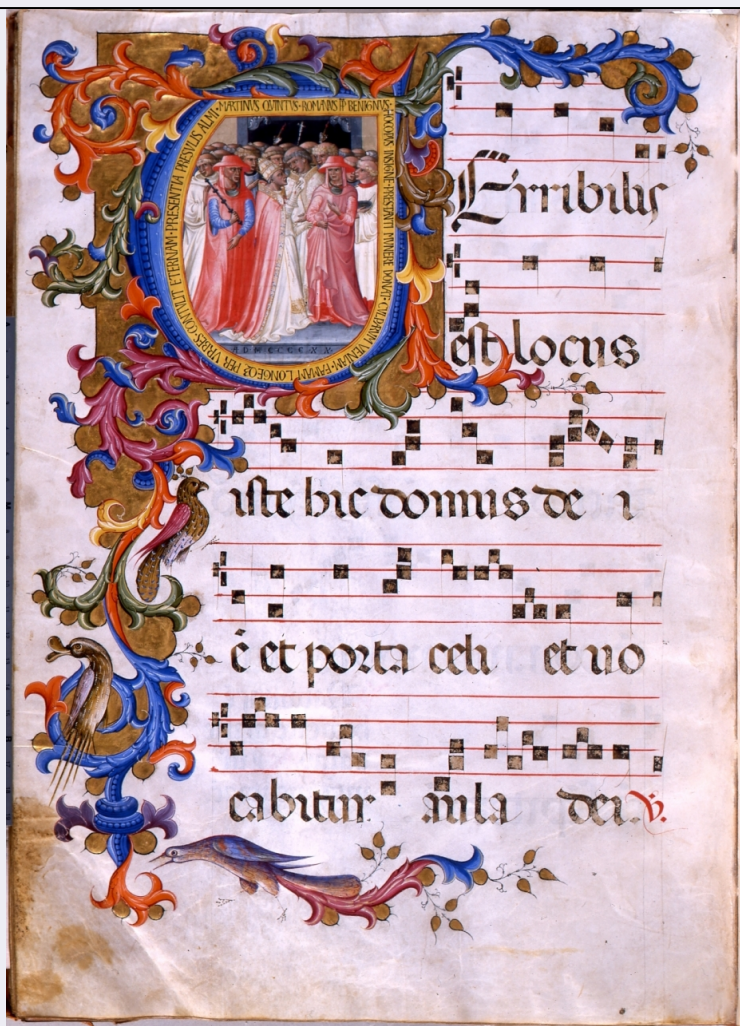 MARTINVS QVINTVS·ROMANVS PP BENIGNVS·HOCOPVS INSIGNE·PRESTANTI MVNERE DONAT·CVLPARVM VENIAM·FAMAM LONGEQ3 PER VRBES·CONTVLIT ETERNAM·PRESENTIA PRESVLIS ALMI·
TErribilis
est locus
iste hic domus de i
ē et porta celi et uo
cabitur aula dei. V.